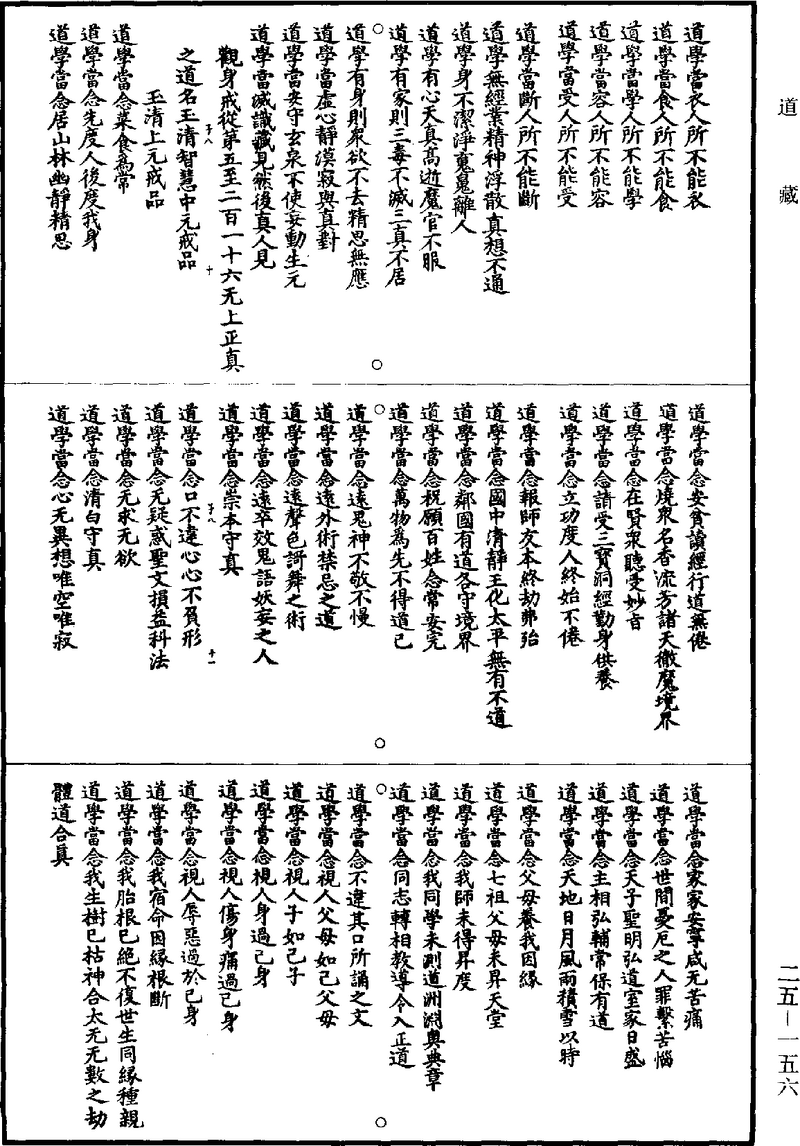 道藏
道學當衣人所不能衣
道學當食人所不能食
道學當學人所不能學
道學當容人所不能容
道學當受人所不能受
道學當斷人所不能斷
道學無經業精神浮散真想不通
道學身不潔淨䰟魄離人
道學有心天真高逝魔官不服
道學有家則三毒不滅三真不居
道學有身則衆欲不去精思無應
道學當虛心靜漠寂與真對
道學當安守玄泉不使妄動生元
道學當滅識藏見然後真人見
觀身戒從第五至二百一十六无上正真
之道名玉清智慧中元戒品
玉清上元戒品
道學當念菜食爲常
道學當念先度人後度我身
道學當念居山林幽靜精思
道學當念安貧讀經行道無倦
道學當念燒衆名香流芳諸天徹魔境界
道學當念在賢衆聽受妙旨
道學當念請受三寶洞經勤身供養
道學當念立功度人終始不倦
道學當念報師友本終劫弗殆
道學當念國中清靜王化太平無有不道
道學當念鄰國有道各守境界
道學當念祝願百姓念常安完
道學當念萬物爲先不得道已
道學當念遠鬼神不敬不慢
道學當念遠外術禁忌之道
道學當念遠聲色謌舞之術
道學當念遠卒效鬼語妖妄之人
道學當念崇本守真
道學當念口不違心心不負形
道學當念无疑惑聖文損益科法
道學當念无求无欲
道學當念清白守真
道學當念心无異想唯空唯寂
道學當念家家安寧咸无苦痛
道學當念世間憂厄之人罪繫苦惱
道學當念天子聖明弘道室家日盛
道學當念主相弘輔常保有道
道學當念天地日月風雨積雪以時
道學當念父母養我因緣
道學當念七祖父母未昇天堂
道學當念我師未得昇度
道學當念我同學未測道洲淵奧典章
道學當念同志轉相教導令入正道
道學當念不違其口所誦之文
道學當念視人父母如己父母
道學當念視人子如己子
道學當念視人身過己身
道學當念視人傷身痛過己身
道學當念視人辱惡過於己身
道學當念我宿命因緣根斷
道學當念我胎根已絕不復世生同緣種親
道學當念我生樹已枯神合太无无數之劫
體道合真
二五—一五六